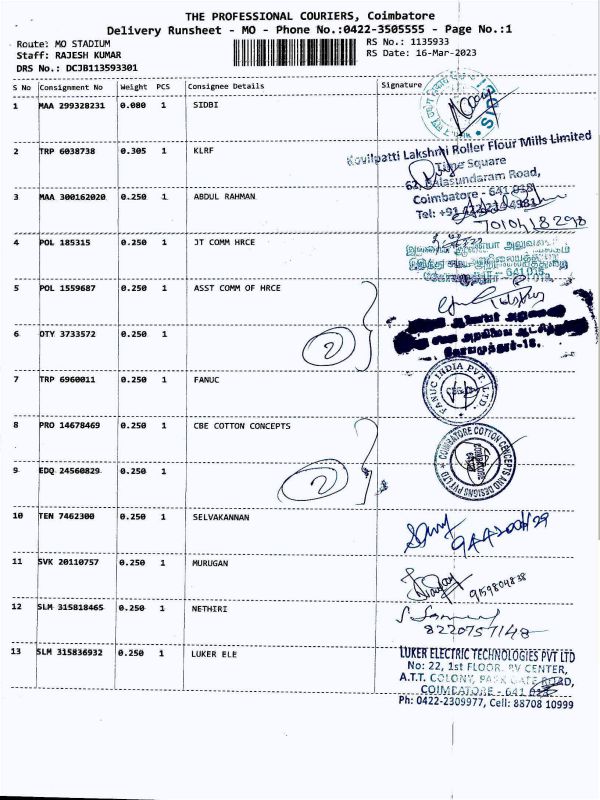 THE PROFESSIONAL COURIERS, Coimbatore
Delivery Runsheet - MO - Phone No.:0422-3505555 - Page No.:1
Route: MO STADIUM
RS No.: 1135933
Staff: RAJESH KUMAR
RS Date: 16-Mar-2023
DRS No.: DCJB113593301
S No Consignment No Weight PCS Consignee Details Signature
1 MAA 299328231 0.080 1 SIDBI
2 TRP 6038738 0.305 1 KLRF
Kovilpatti Lakshmi Roller Flour Mills Limited
Time Square
62, Balasundaram Road,
3 MAA 300162020 0.250 1 ABDUL RAHMAN
Coimbatore - 641 018
Tel: +91
7010418298
4 POL 185315 0.250 1 JT COMM HRCE
5 POL 1559687 0.250 1 ASST COMM OF HRCE
6 OTY 3733572 0.250 1
2
கோயமுத்தூர்-18.
7 TRP 6960011 0.250 1 FANUC
FANUC INDIA PVT. LTD.
8 PRO 14678469 0.250 1 CBE COTTON CONCEPTS
COIMBATORE COTTON CONCEPTS AND DESIGNS PVT LTD
9 EDQ 24560829 0.250 1
2
10 TEN 7462300 0.250 1 SELVAKANNAN
11 SVK 20110757 0.250 1 MURUGAN
9159804838
12 SLM 315818465 0.250 1 NETHIRI
8220757148
13 SLM 315836932 0.250 1 LUKER ELE
LUKER ELECTRIC TECHNOLOGIES PVT LTD
No: 22, 1st FLOOR, RV CENTER,
A.T.T. COLONY, PARK GATE ROAD,
COIMBATORE - 641 018
Ph: 0422-2309977, Cell: 88708 10999